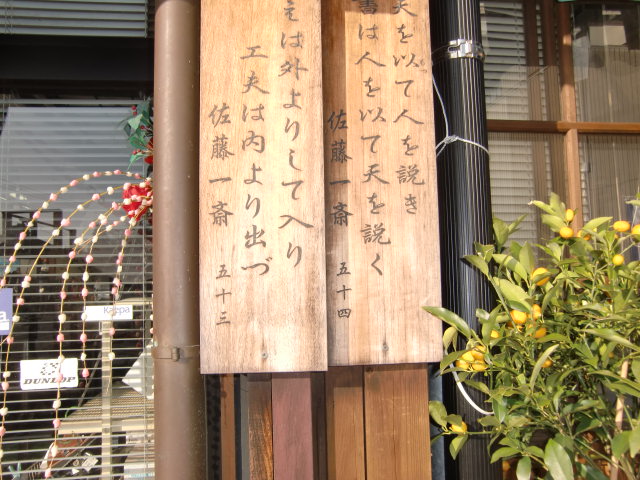 天を以て人を説き
書は人を以て天を説く
佐藤一斎 五十四
は外よりして入り
工夫は内より出づ
佐藤一斎 五十三
Kappa
DUNLOP